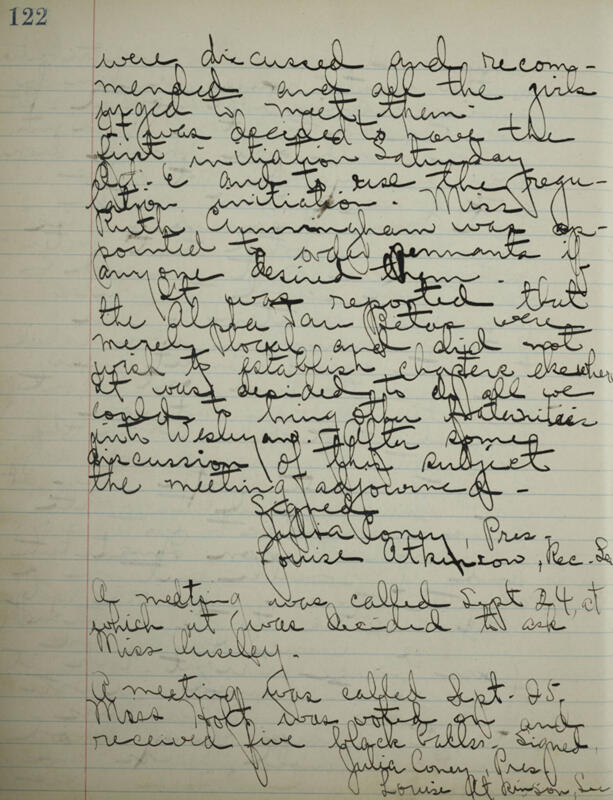 122
were discussed and recom-
mended and all the girls
urged to meet them.
It was decided to have the
first initiation Saturday
and to use the regu-
lation initiation. Miss
Ruth Cunningham was ap-
pointed to order pennants if
anyone desired them.
It was reported that
the Alpha Tau Betas were
merely local and did not
wish to establish chapters elsewhere
It was decided to do all we
could to bring other fraternities
into Wesleyan. After some
discussion of this subject
the meeting adjourned -
Signed
Julia Coney, Pres.
Louise Atkinson, Rec. Sec
A meeting was called Sept 24, at
which it was decided to ask
Miss
A meeting was called Sept. 25.
Miss Holt was voted on and
received five black balls. Signed,
Julia Coney, Pres.
Louise Atkinson, Sec